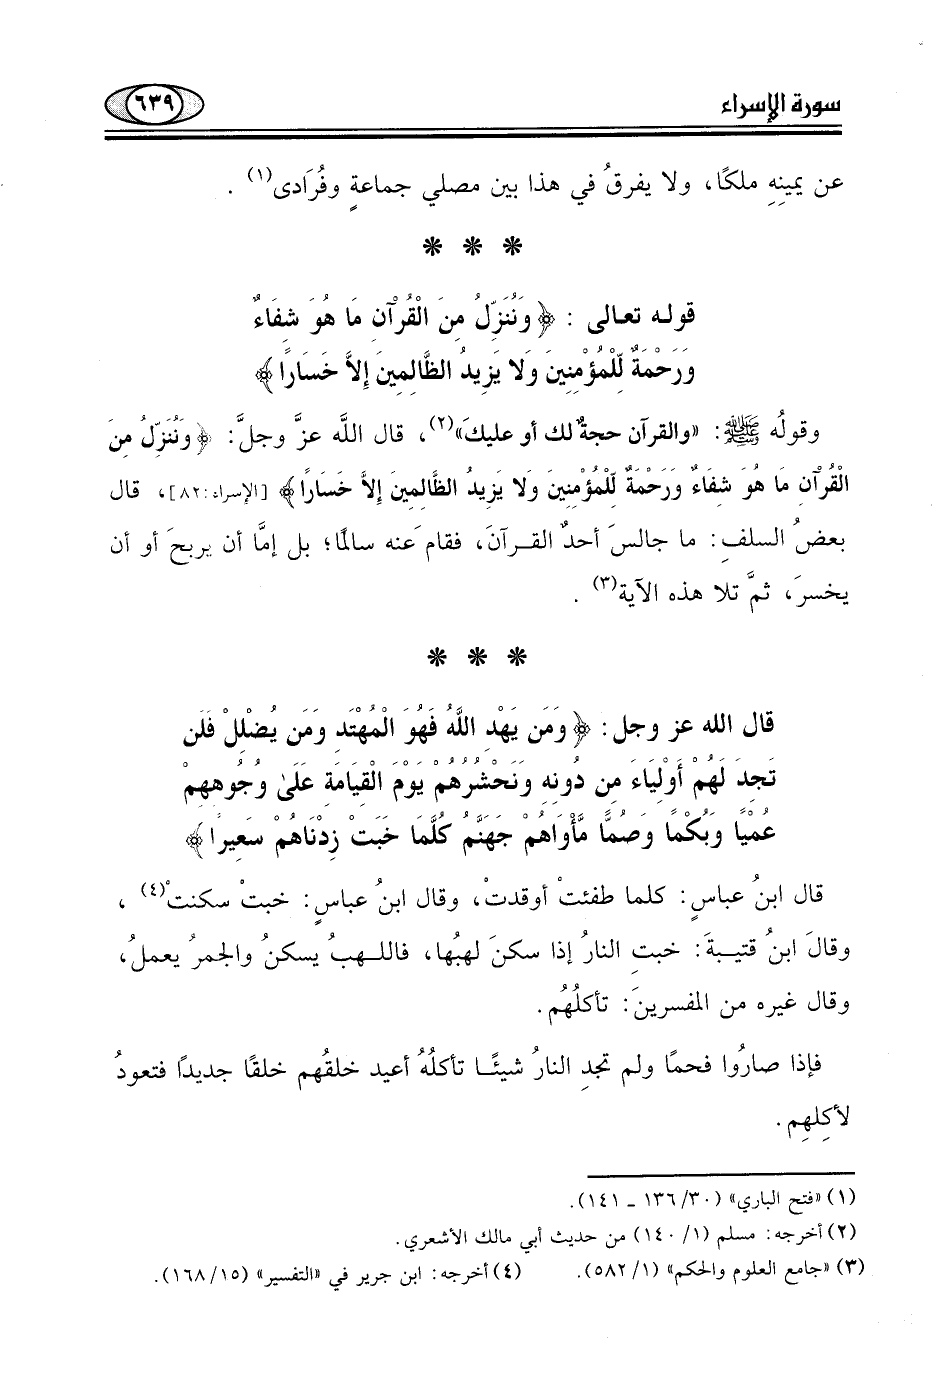 سورة الإسراء ٦٣٩
عن يمينِهِ ملكًا، ولا يفرقُ في هذا بين مصلي جماعةٍ وفُرَادى(١) .
* * *
قولـه تعـالى : ﴿ وَنُنَزِّلُ مِنَ الْقُرْآنِ مَا هُوَ شِفَاءٌ
وَرَحْمَةٌ لِّلْمُؤْمِنِينَ وَلا يَزِيدُ الظَّالِمِينَ إِلاَّ خَسَارًا ﴾
وقولُه ﷺ: «والقرآن حجةٌ لك أو عليكَ»(٢)، قال اللَّه عزَّ وجلَّ: ﴿ وَنُنَزِّلُ مِنَ
الْقُرْآنِ مَا هُوَ شِفَاءٌ وَرَحْمَةٌ لِّلْمُؤْمِنِينَ وَلا يَزِيدُ الظَّالِمِينَ إِلاَّ خَسَارًا ﴾ [الإسراء:٨٢]، قال
بعضُ السلفِ: ما جالسَ أحدٌ القـرآنَ، فقام عنه سالمًا؛ بل إمَّا أن يربحَ أو أن
يخسرَ، ثمَّ تلا هذه الآية(٣) .
* * *
قال الله عز وجل: ﴿ وَمَن يَهْدِ اللَّهُ فَهُوَ الْمُهْتَدِ وَمَن يُضْلِلْ فَلَن
تَجِدَ لَهُمْ أَوْلِيَاءَ مِن دُونِهِ وَنَحْشُرُهُمْ يَوْمَ الْقِيَامَةِ عَلَىٰ وُجُوهِهِمْ
عُمْيًا وَبُكْمًا وَصُمًّا مَّأْوَاهُمْ جَهَنَّمُ كُلَّمَا خَبَتْ زِدْنَاهُمْ سَعِيرًا ﴾
قال ابنُ عباسٍ: كلما طفئتْ أوقدتْ، وقال ابنُ عباسٍ: خبتْ سكنتْ(٤) ،
وقالَ ابنُ قتيـبةَ: خبتِ النارُ إذا سكنَ لهبُها، فاللـهبُ يسكنُ والجمرُ يعملُ،
وقال غيره من المفسرينَ: تأكلُهُم.
فإذا صارُوا فحمًا ولم تجدِ النارُ شيئًـا تأكلُهُ أعيد خلقُهم خلقًا جديدًا فتعودُ
لأكلِهِم.
(١) «فتح الباري» (٣٠/ ١٣٦ ـ ١٤١).
(٢) أخرجه: مسلم (١/ ١٤٠) من حديث أبي مالك الأشعري.
(٣) «جامع العلوم والحكم» (١/ ٥٨٢). (٤) أخرجه: ابن جرير في «التفسير» (١٥/ ١٦٨).